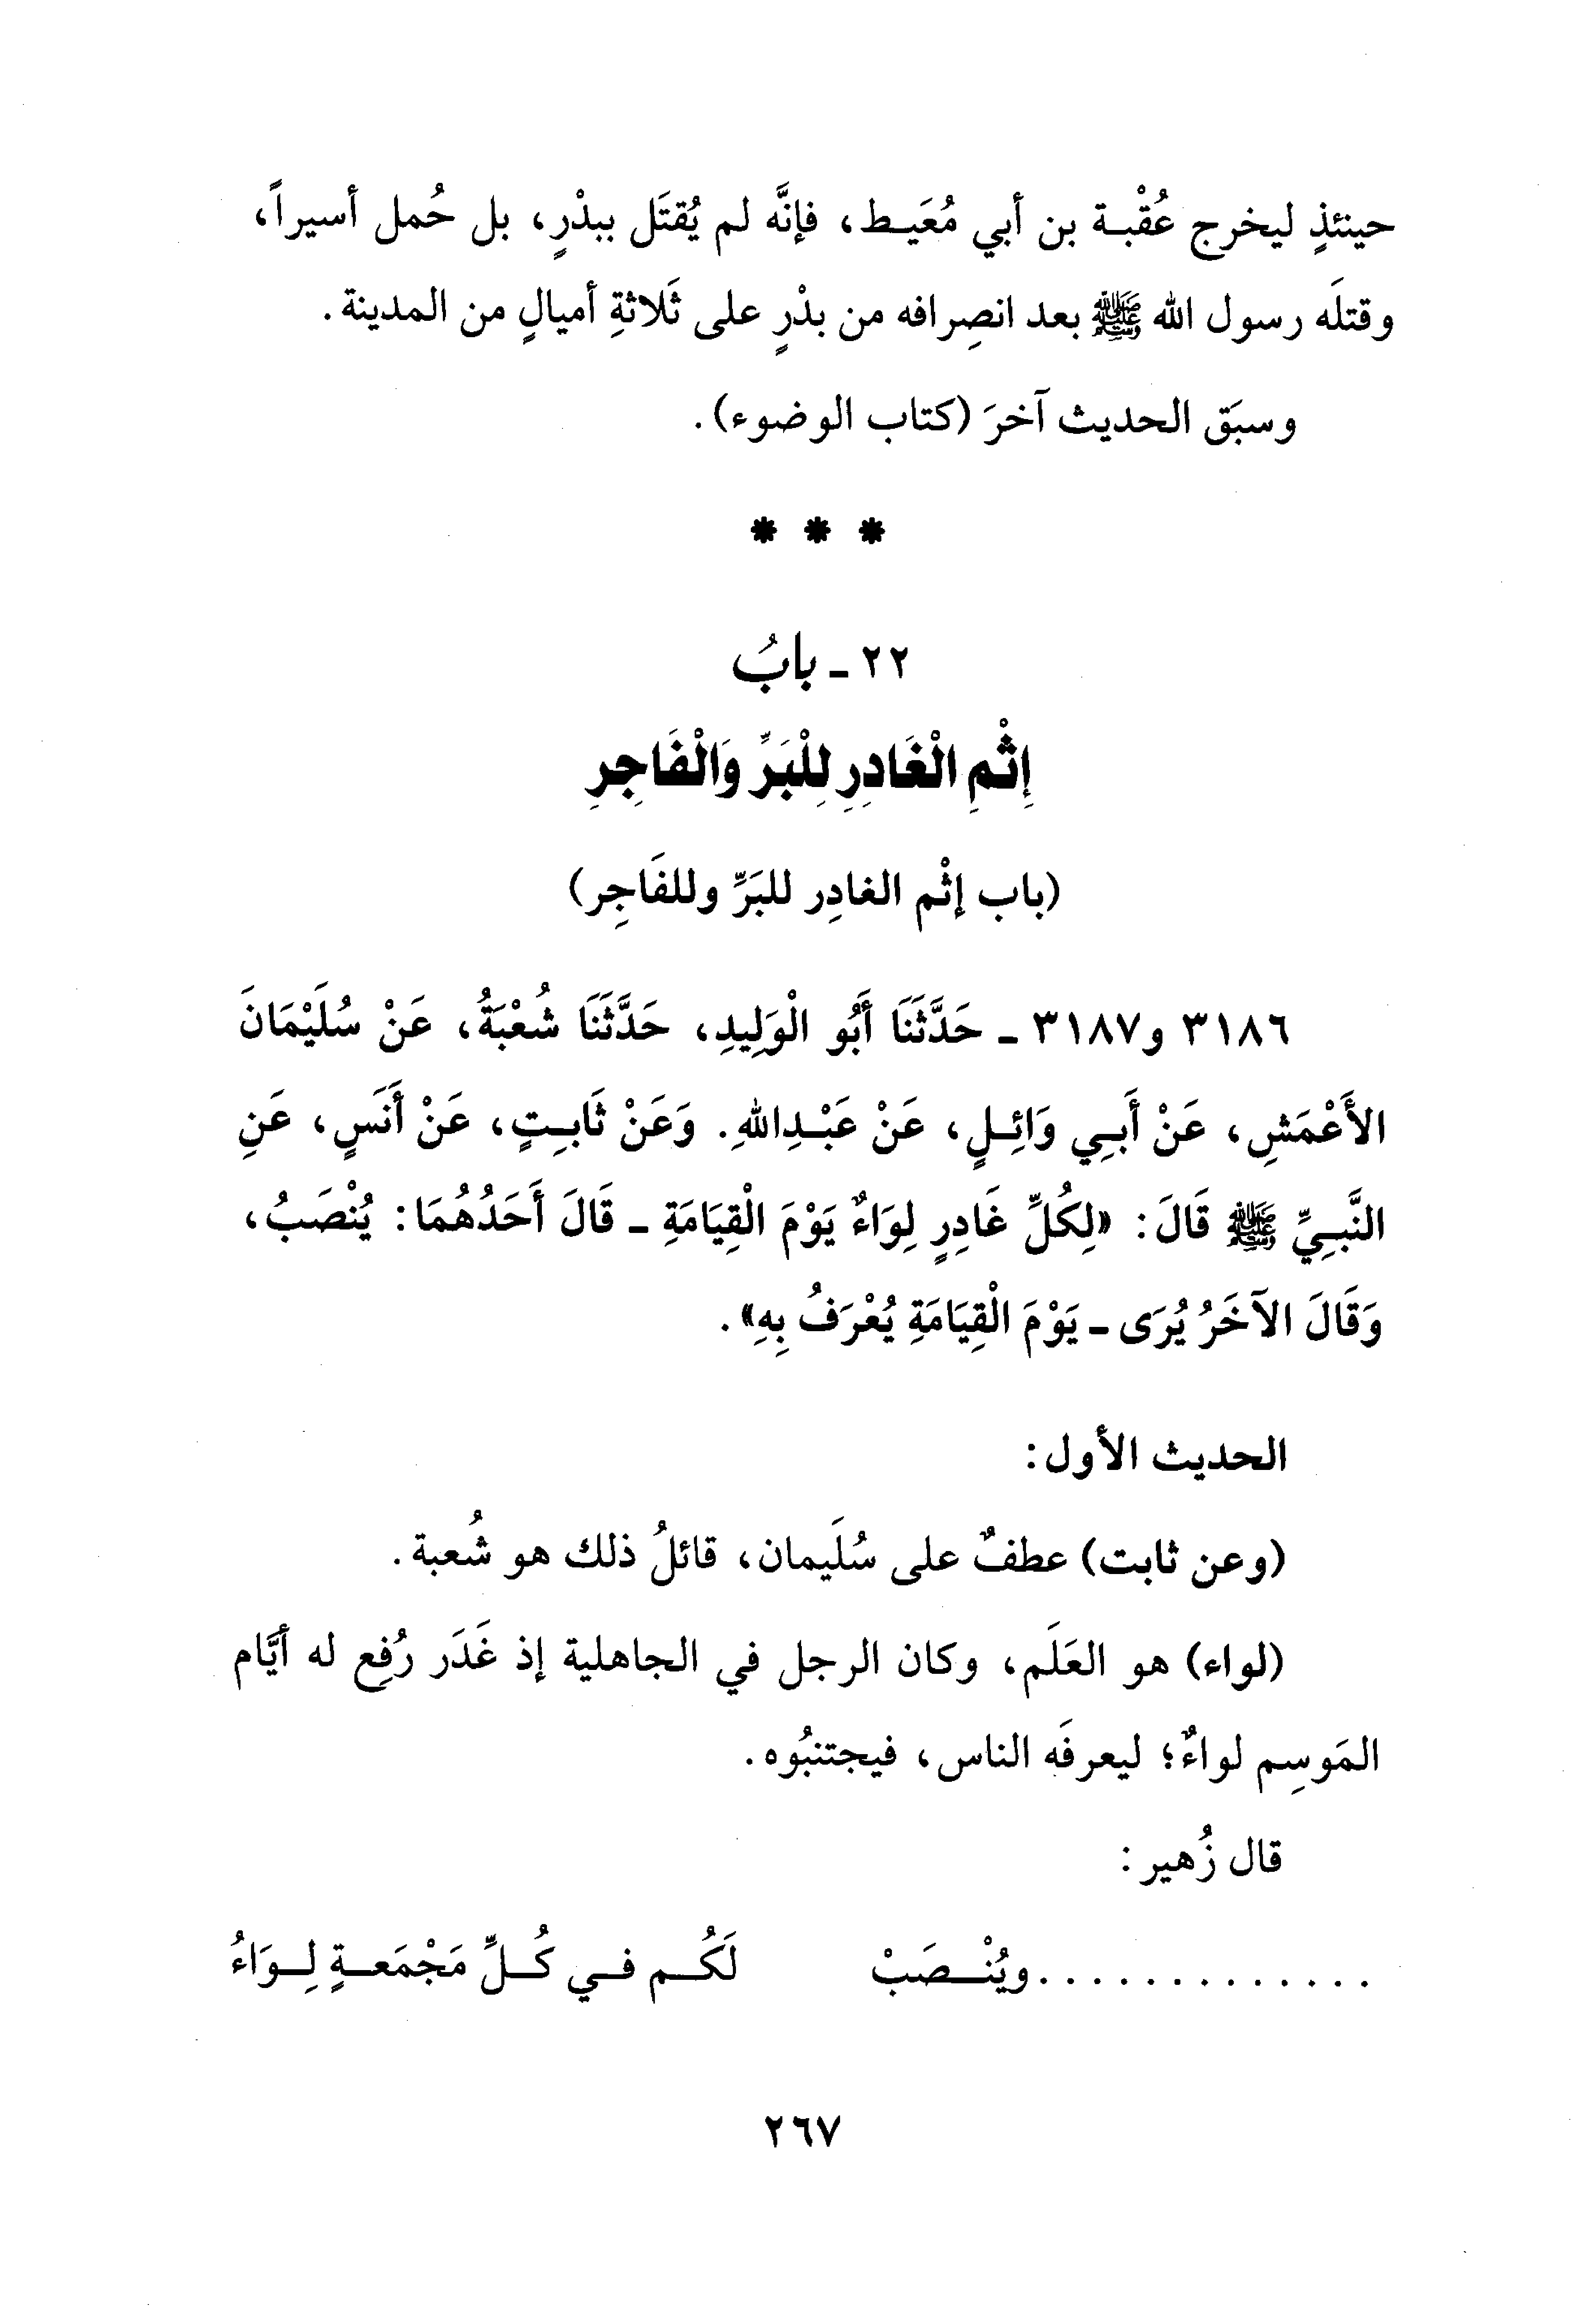 حينئذٍ ليخرج عُقْبة بن أبي مُعَيط، فإنَّه لم يُقتَل ببدْرٍ، بل حُمل أسيراً،
وقتلَه رسول الله ﷺ بعد انصِرافه من بدْرٍ على ثَلاثةِ أميالٍ من المدينة.
وسبَق الحديث آخرَ (كتاب الوضوء).
* * *
٢٢ ـ بابُ
إِثْمِ الْغَادِرِ لِلْبَرِّ وَالْفَاجِرِ
(باب إثْم الغادِر للبَرِّ وللفَاجِر)
٣١٨٦ و٣١٨٧ ـ حَدَّثَنَا أَبُو الْوَلِيدِ، حَدَّثَنَا شُعْبَةُ، عَنْ سُلَيْمَانَ
الأَعْمَشِ، عَنْ أَبِي وَائِلٍ، عَنْ عَبْدِاللهِ. وَعَنْ ثَابِتٍ، عَنْ أَنَسٍ، عَنِ
النَّبِيِّ ﷺ قَالَ: «لِكُلِّ غَادِرٍ لِوَاءٌ يَوْمَ الْقِيَامَةِ ـ قَالَ أَحَدُهُمَا: يُنْصَبُ،
وَقَالَ الآخَرُ يُرَى ـ يَوْمَ الْقِيَامَةِ يُعْرَفُ بِهِ».
الحديث الأول:
(وعن ثابت) عطفٌ على سُلَيمان، قائلُ ذلك هو شُعبة.
(لواء) هو العَلَم، وكان الرجل في الجاهلية إذ غَدَر رُفِع له أيَّام
المَوسِم لواءٌ؛ ليعرفَه الناس، فيجتنبُوه.
قال زُهير:
.............ويُنْصَبْ لَكُم في كُلِّ مَجْمَعةٍ لِوَاءُ
٢٦٧